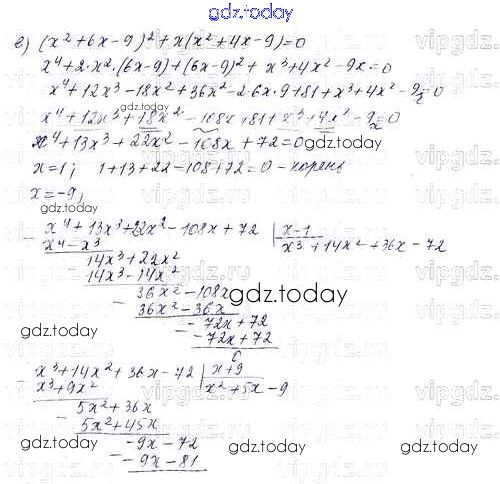 gdz.today
e) (x²+6x-9)²+x(x²+4x-9)=0
x⁴+2·x²·(6x-9)+(6x-9)²+x³+4x²-9x=0
x⁴+12x³-18x²+36x²-2·6x·9+81+x³+4x²-9x=0
gdz.today
x⁴+12x³+18x²-108x+81+x³+4x²-9x=0
x⁴+13x³+22x²-108x+72=0
gdz.today
x=1; 1+13+22-108+72=0 - корень
x=-9;
gdz.today
x⁴+13x³+22x²-108x+72 | x-1
x⁴-x³
x³+14x²+36x-72
14x³+22x²
14x³-14x²
36x²-108x
gdz.today
36x²-36x
gdz.today
-72x+72
-72x+72
0
gdz.today
x³+14x²+36x-72 | x+9
x³+9x²
x²+5x-9
5x²+36x
5x²+45x
-9x-72
gdz.today
gdz.today
gdz.today
-9x-81